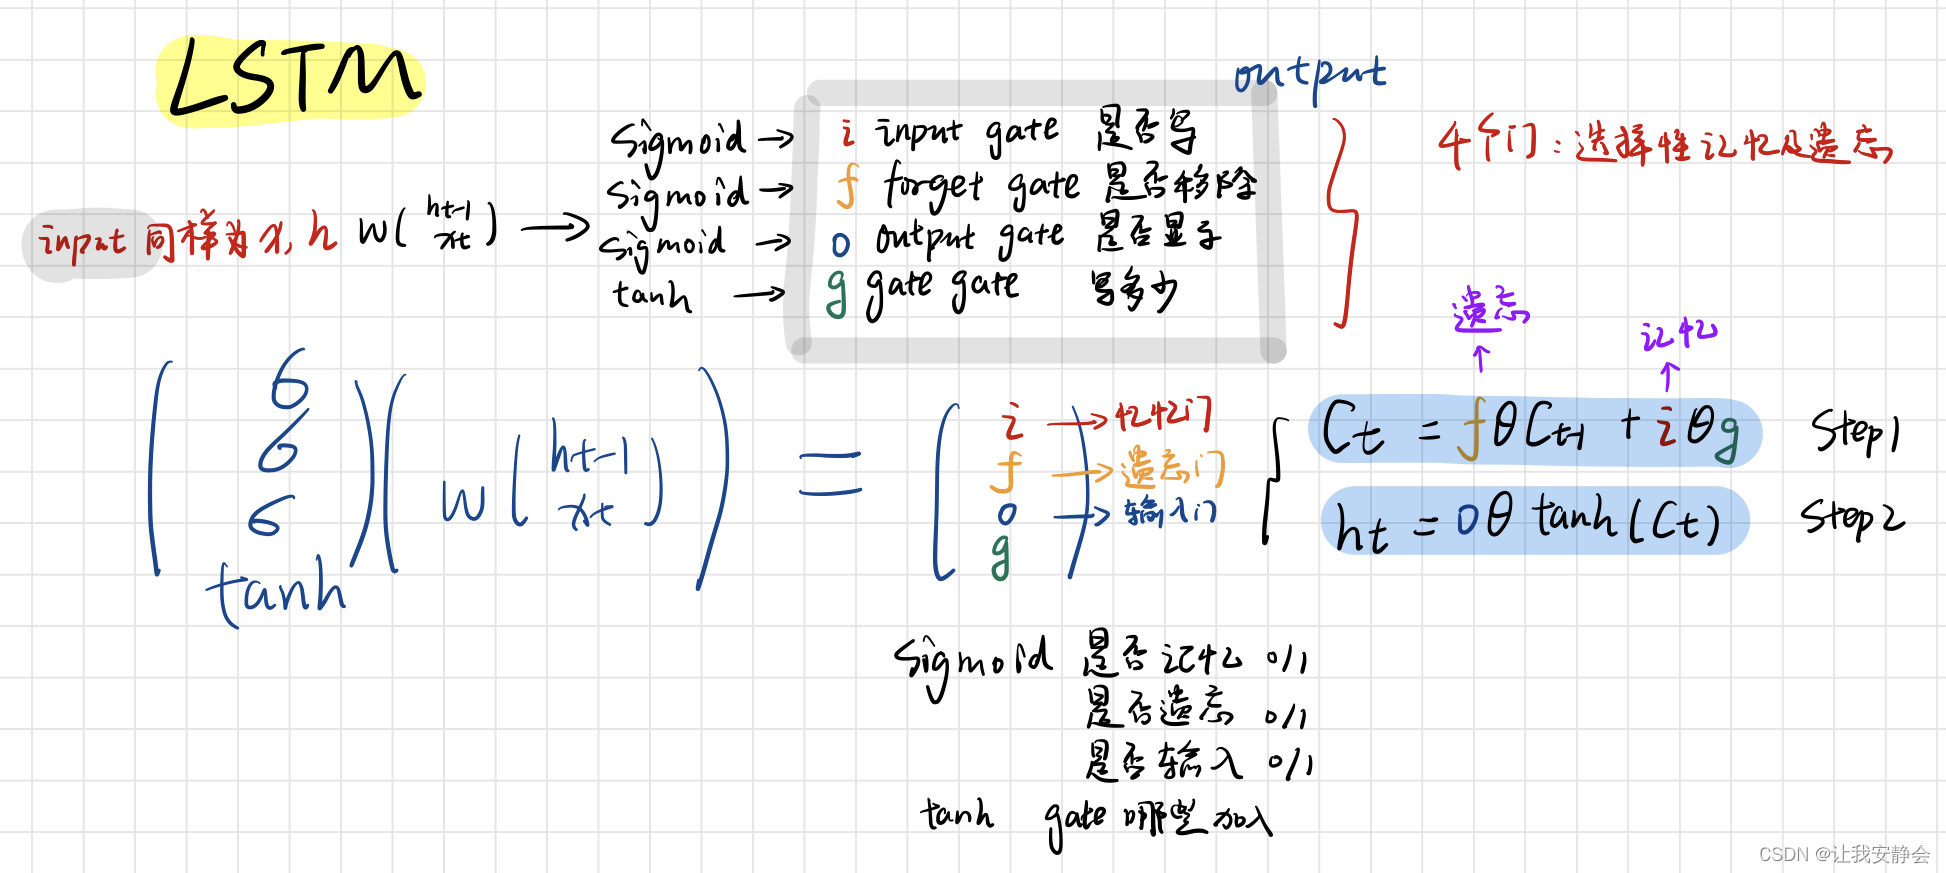 LSTM
output
sigmoid → i input gate 是否写
sigmoid → f forget gate 是否移除
input 同样为 x, h W(ht-1 xt) → sigmoid → o output gate 是否显示
tanh → g gate gate 写多少
4个门：选择性记忆及遗忘
遗忘 记忆
(σ σ σ tanh)(W(ht-1 xt)) = (i f o g)
i → 忆忆门
f → 遗忘门
o → 输入门
Ct = fθCt-1 + iθg Step1
ht = oθtanh(Ct) Step2
sigmoid 是否记忆 0/1
是否遗忘 0/1
是否输入 0/1
tanh gate 哪些加入
CSDN @让我安静会